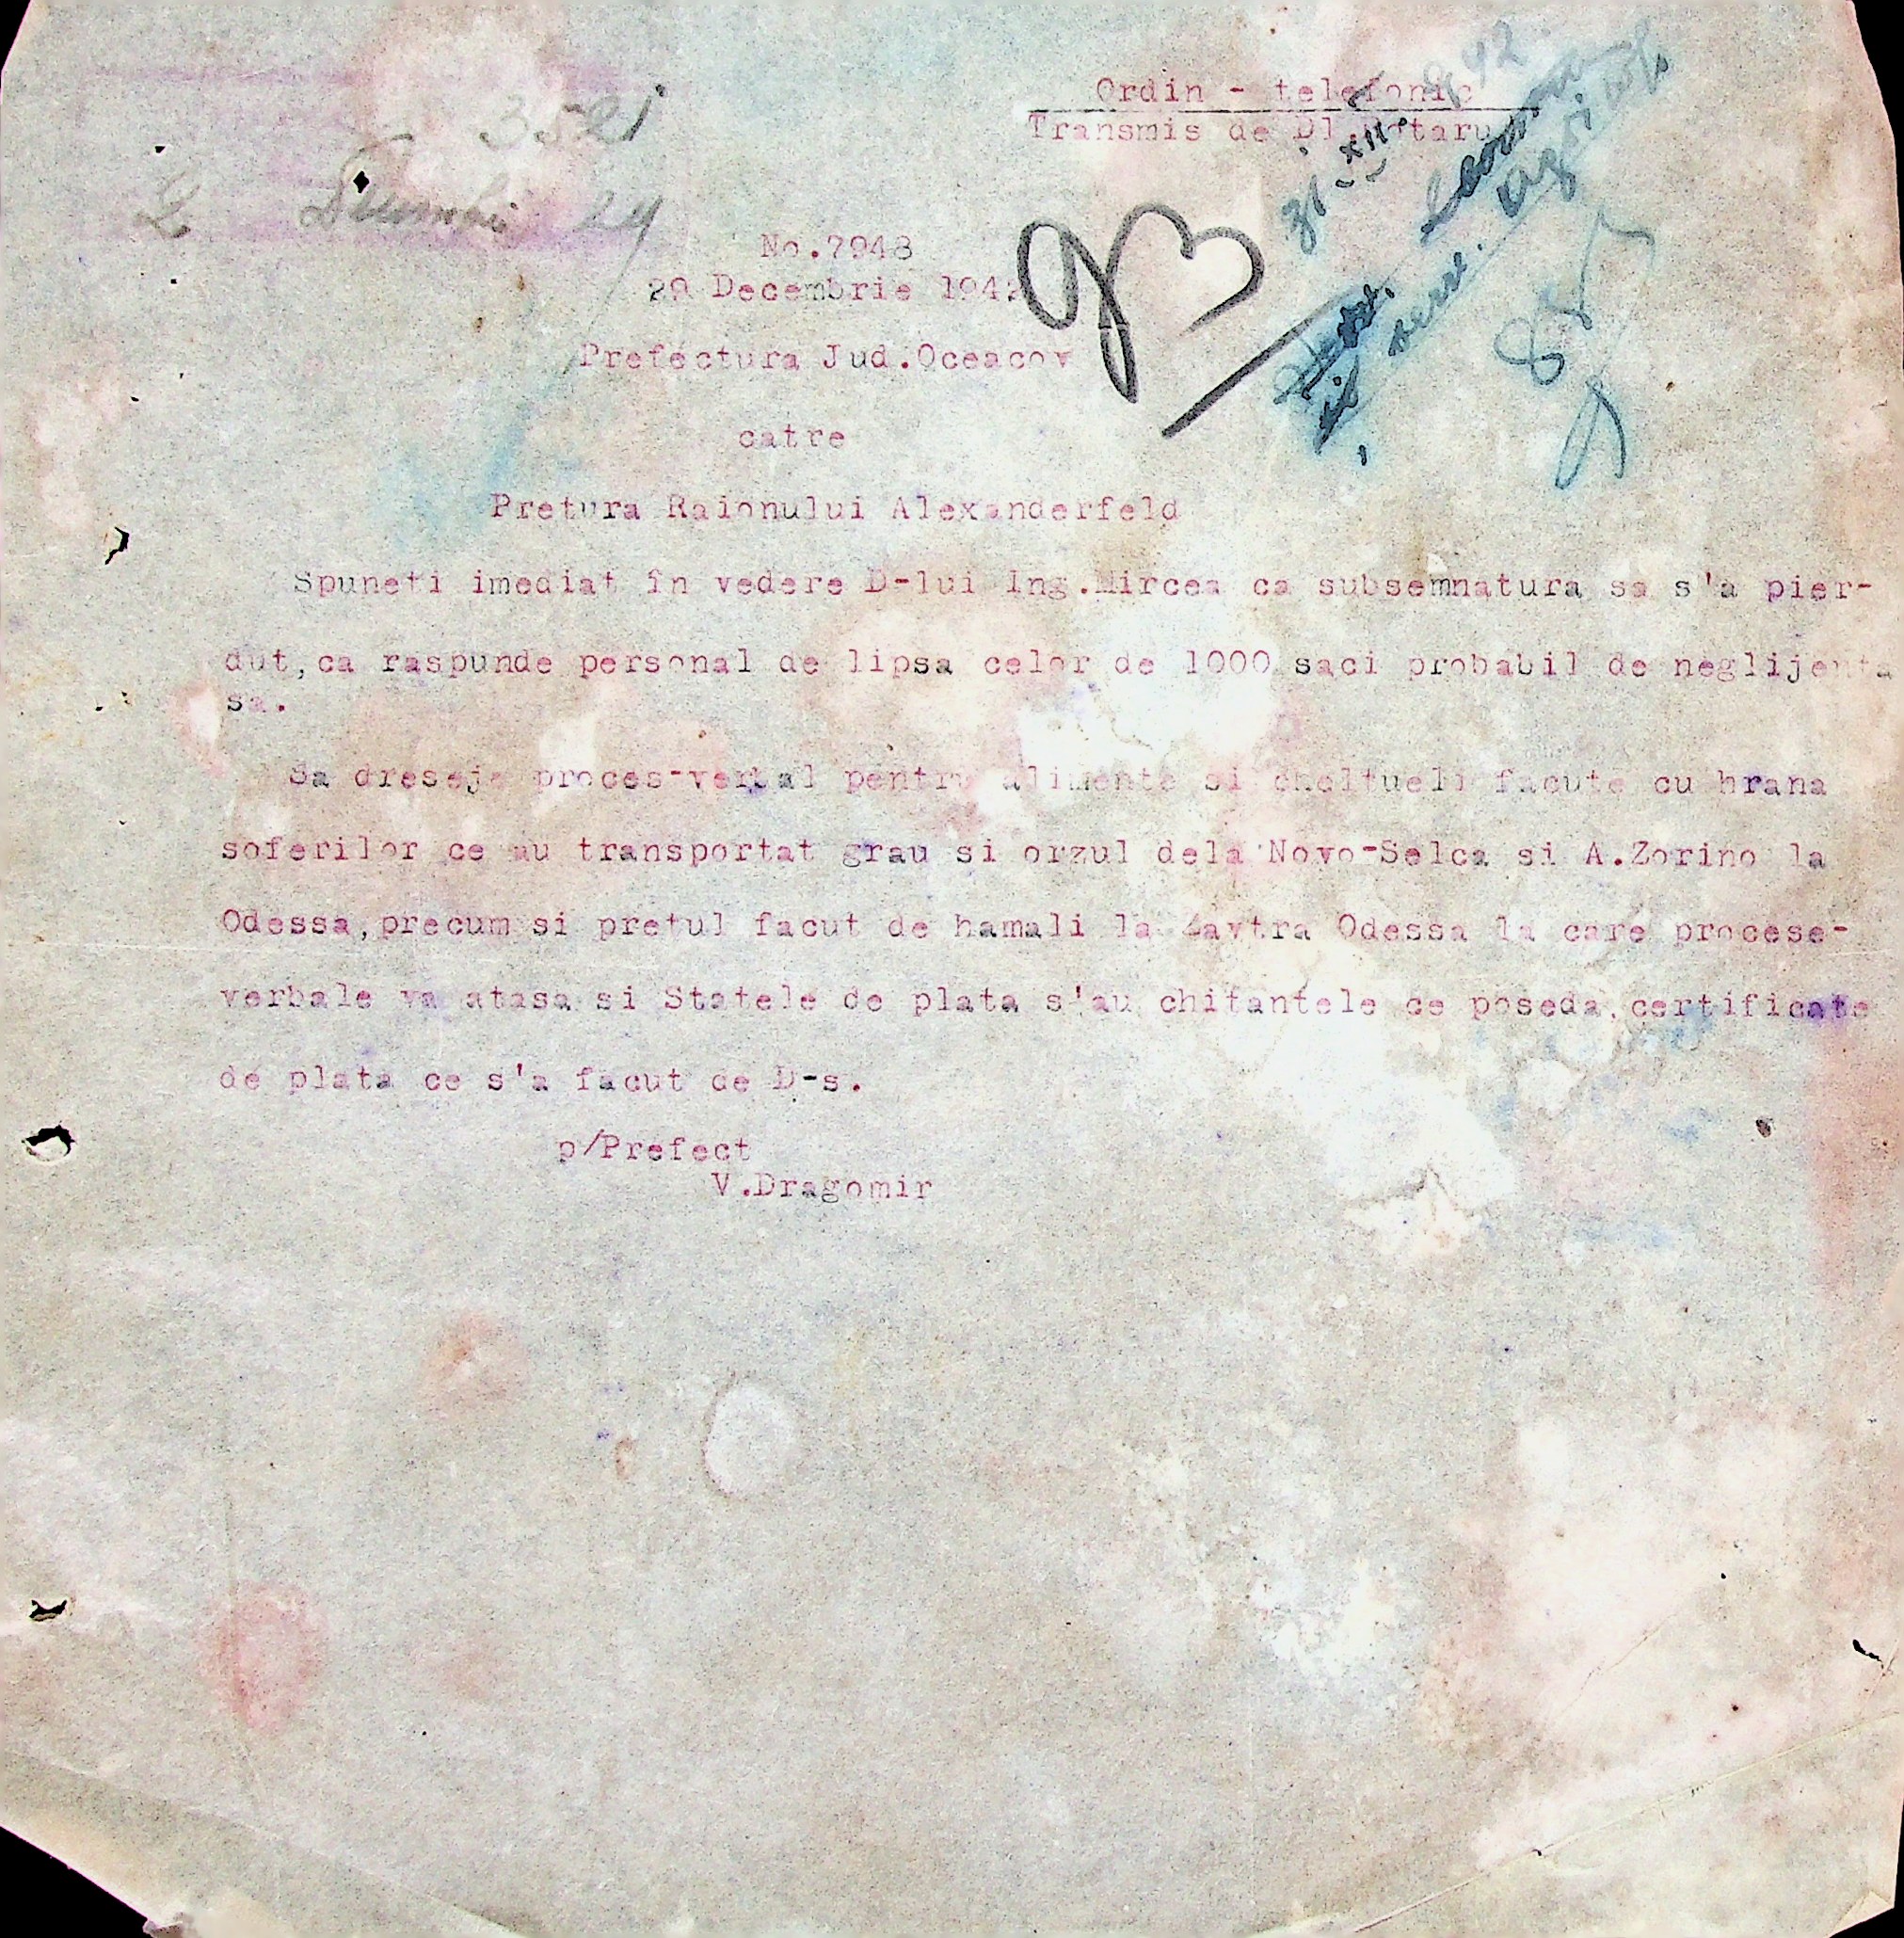 Ordin - telefonic
Transmis de Dl.Notaru
3521
31 XII 942
No.7948
29 Decembrie 1942
Prefectura Jud.Oceacov
catre
Pretura Raionului Alexanderfeld
Spuneti imediat în vedere D-lui Ing.Mircea ca subsemnatura sa s'a pier-
dut,ca raspunde personal de lipsa celor de 1000 saci probabil de neglijenta
sa.
Sa dreseje proces-verbal pentru alimente si cheltueli facute cu hrana
soferilor ce au transportat grau si orzul dela Novo-Selca si A.Zorino la
Odessa,precum si pretul facut de hamali la Zavtra Odessa la care procese-
verbale va atasa si Statele de plata s'au chitantele ce poseda,certificate
de plata ce s'a facut de D-s.
p/Prefect
V.Dragomir